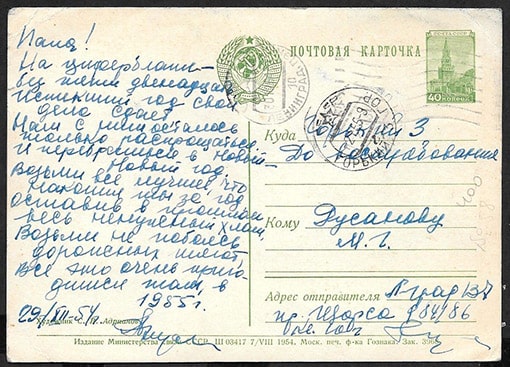 Папа!
На циферблати-
ке пети двенадцат
истекший год свои
дела сдает
Нам с ним осталось
только распрощаться
И перебраться в Новый-
Новый год.
Возьми все лучшее, что
накопил ты за год
оставив в прошлом
весь ненужный хлам,
Возьми не побоясь
дорожных тягот
Всё это очень приго-
дится там, в
1955 г.
29/XII-54
ПОЧТОВАЯ КАРТОЧКА
ПОЧТА СССР
40 КОПЕЕК
Куда Горький 3
До востребования
Кому Русанову
М. Г.
Адрес отправителя Л-град 137
пр. Щорса 84/86
Художник С. Адрианов
Издание Министерства связи СССР. Ш 03417 7/VIII 1954, Моск. печ. ф-ка Гознака. Зак. 396
ГОРЬКИЙ
400